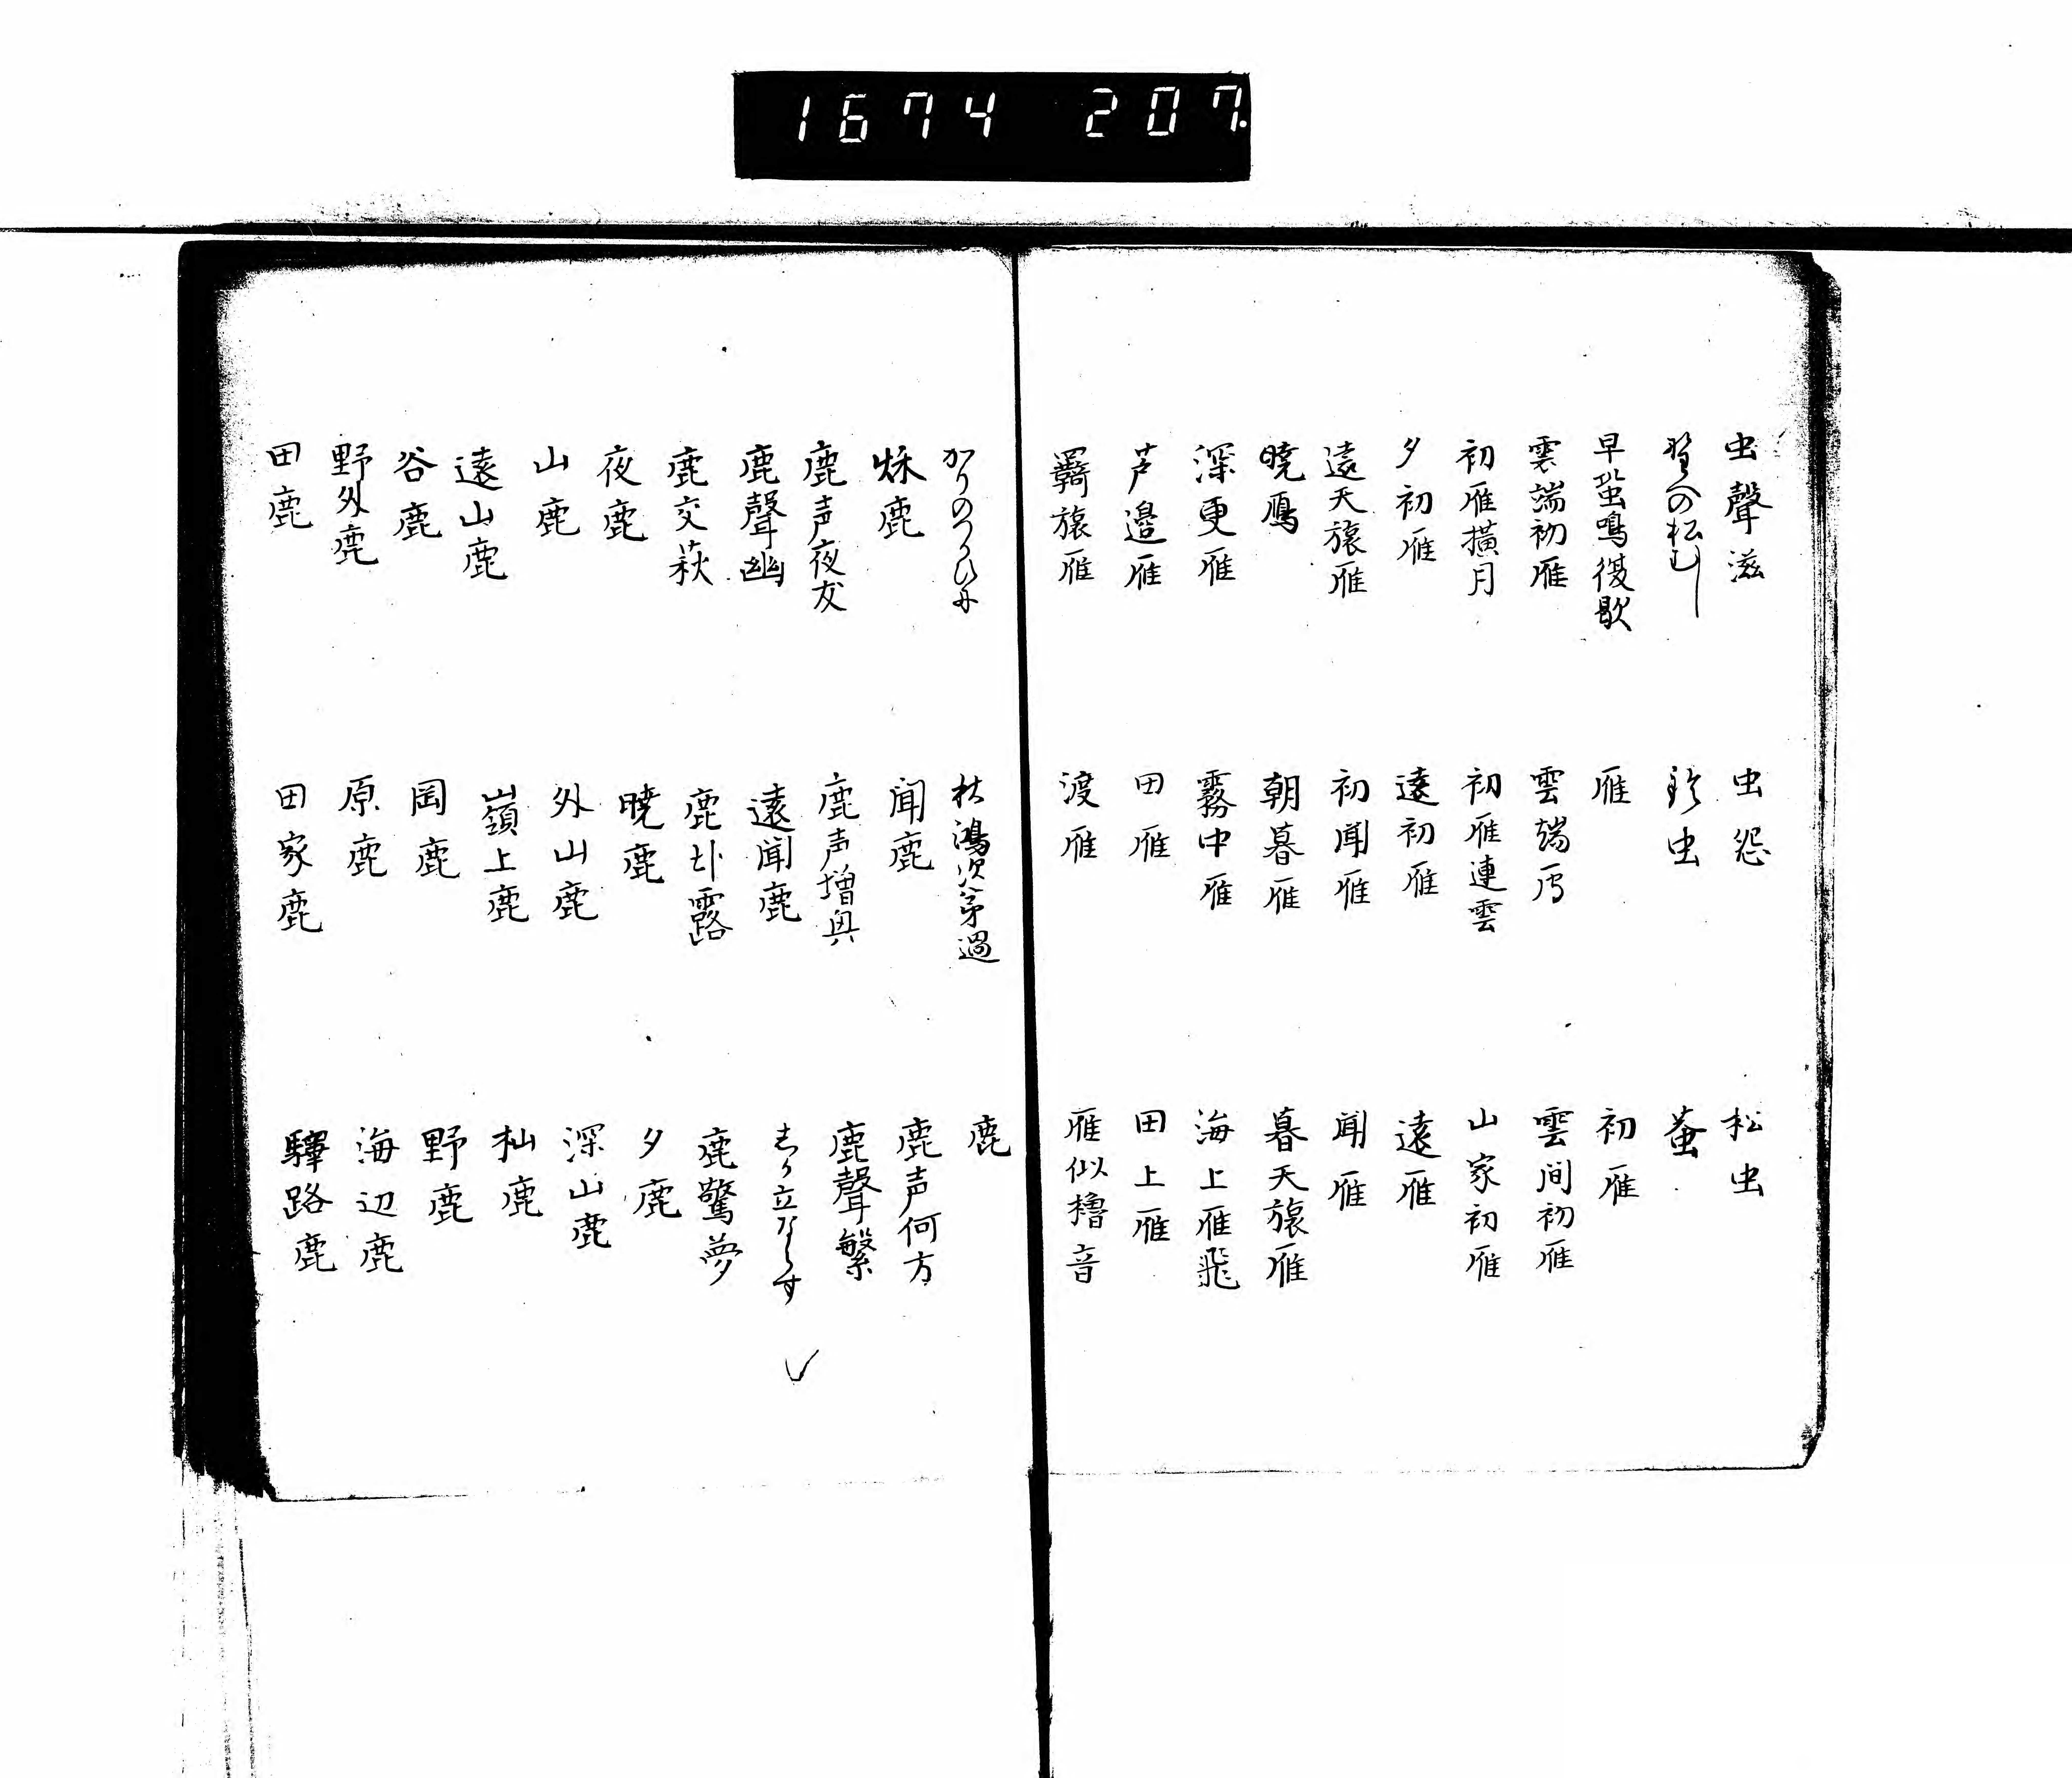 1674 207.
虫聲滋
虫怨
松虫
野への松むし
鈴虫
蚕
早蛩鳴復歇
雁
初雁
雲端初雁
雲端雁
雲间初雁
初雁横月
初雁連雲
山家初雁
夕初雁
遠初雁
遠雁
遠天旅雁
初聞雁
聞雁
暁鴈
朝暮雁
暮天旅雁
深更雁
霧中雁
海上雁飛
芦邉雁
田雁
田上雁
羇旅雁
渡雁
雁似櫓音
かりのつかひに
秋鴻次第過
鹿
秌鹿
聞鹿
鹿声何方
鹿声夜友
鹿声増興
鹿聲繁
鹿聲幽
遠聞鹿
しか立ならす
鹿交萩
鹿卧露
鹿驚夢
夜鹿
暁鹿
夕鹿
山鹿
外山鹿
深山鹿
遠山鹿
嶺上鹿
杣鹿
谷鹿
岡鹿
野鹿
野外鹿
原鹿
海辺鹿
田鹿
田家鹿
驛路鹿